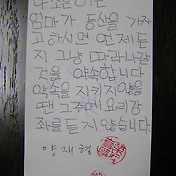 나 소은이는
엄마가 등산을 가자
고 하시면 언제든
지 그냥 따라나갈
것을 약속합니다
약속을 지키지 않을
땐 그 주에 요리강
좌를 듣지 않습니다.
양재혁